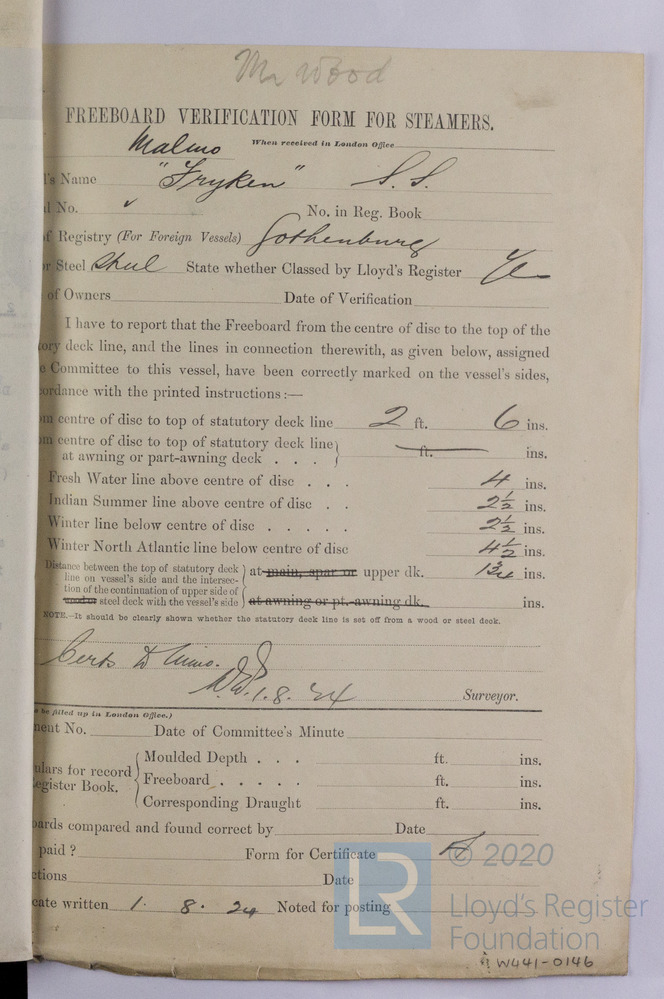 Mr Wood
FREEBOARD VERIFICATION FORM FOR STEAMERS.
Malmo When received in London Office
l's Name "Fryken" S.S.
l No. ✓ No. in Reg. Book
of Registry (For Foreign Vessels) Gothenburg
or Steel Steel State whether Classed by Lloyd's Register Yes
of Owners Date of Verification
I have to report that the Freeboard from the centre of disc to the top of the
tory deck line, and the lines in connection therewith, as given below, assigned
e Committee to this vessel, have been correctly marked on the vessel's sides,
cordance with the printed instructions:—
om centre of disc to top of statutory deck line 2 ft. 6 ins.
om centre of disc to top of statutory deck line
at awning or part-awning deck . . . ft. ins.
Fresh Water line above centre of disc . . . 4 ins.
Indian Summer line above centre of disc . . 2½ ins.
Winter line below centre of disc . . . . . 2½ ins.
Winter North Atlantic line below centre of disc 4½ ins.
Distance between the top of statutory deck
line on vessel's side and the intersec-
tion of the continuation of upper side of
wood or steel deck with the vessel's side
at main, spar or upper dk. 1¾ ins.
at awning or pt.-awning dk. ins.
NOTE.—It should be clearly shown whether the statutory deck line is set off from a wood or steel deck.
1.8.24 Surveyor.
be filled up in London Office.)
ment No. Date of Committee's Minute
ulars for record
Register Book.
Moulded Depth . . . ft. ins.
Freeboard . . . . . ft. ins.
Corresponding Draught ft. ins.
oards compared and found correct by Date
paid ? Form for Certificate
ctions Date
cate written 1. 8. 24 Noted for posting
© 2020
LR
Lloyd's Register
Foundation
W441-0146